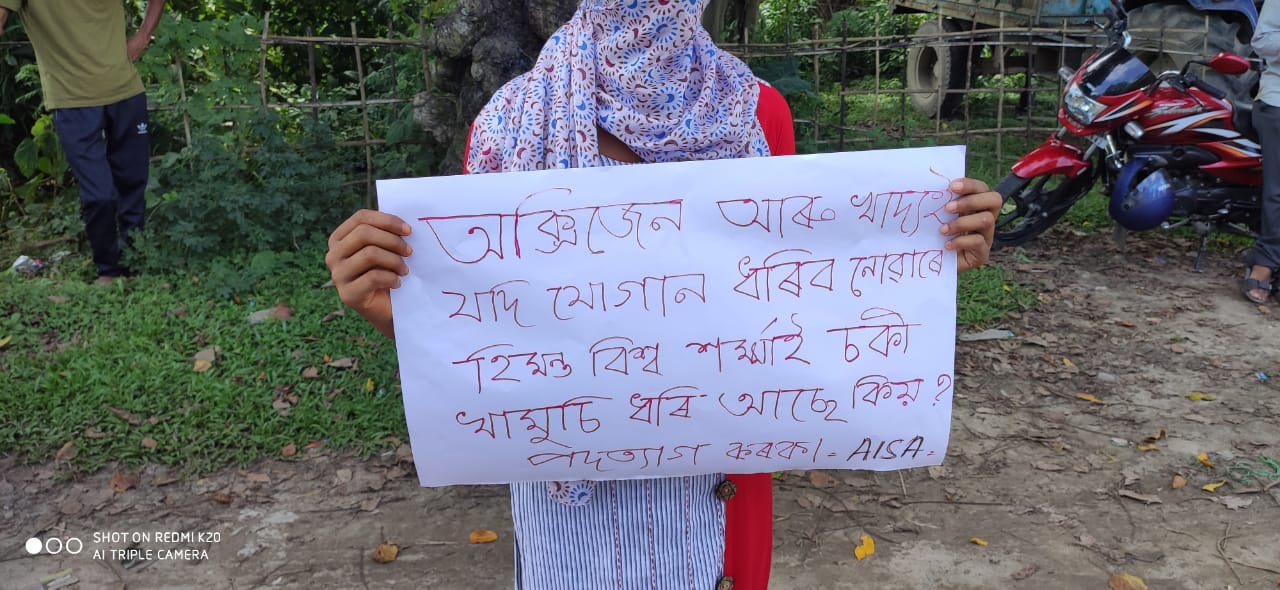 অক্সিজেন আৰু খাদ্যই
যদি যোগান ধৰিব নোৱাৰে
হিমন্ত বিশ্ব শৰ্ম্মাই চকী
খামুচি ধৰি আছে কিয়?
পদত্যাগ কৰক। - AISA -
SHOT ON REDMI K20
AI TRIPLE CAMERA